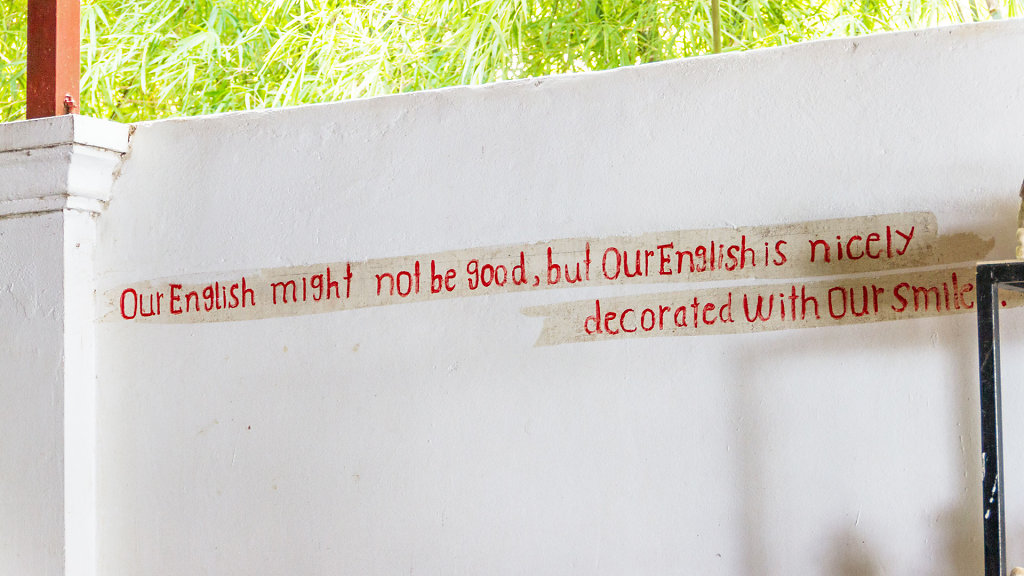 Our English might not be good, but Our English is nicely
decorated with our smile .